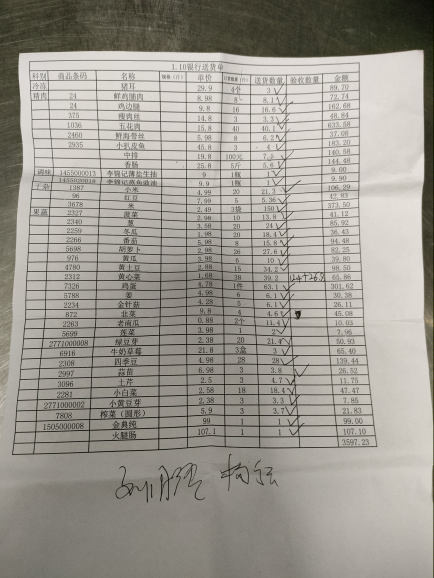 1.10银行送货单
科别 商品条码 名称 规格（斤） 单价 订货数量（斤） 送货数量 验收数量 金额
冷冻 猪耳 29.9 4个 3 89.70
精肉 24 鲜鸡脯肉 8.98 8 8.1 72.74
24 鸡边腿 9.8 16 16.6 162.68
375 瘦肉丝 14.8 3 3.3 48.84
1036 五花肉 15.8 40 40.1 633.58
2460 鲜海带丝 5.98 8 6.2 37.08
2935 小扒皮鱼 45.8 3 4 183.20
中排 19.8 100元 7. 140.58
香肠 25.8 5斤 5.6 144.48
调味 1455000013 李锦记薄盐生抽 9 1瓶 1 9.00
9.9 1瓶 1 9.90
1387 小米 4.99 20 21.3 106.29
96 红豆 7.99 5 5.36 42.83
3678 米 2.49 3袋 150 373.50
果蔬 2327 菠菜 2.98 10 13.8 41.12
2340 葱 3.58 20 24 85.92
2259 冬瓜 1.98 20 18.4 36.43
2266 番茄 5.98 8 15.8 94.48
5698 胡萝卜 2.98 26 27.6 82.25
976 黄瓜 3.98 6 10 39.80
4780 黄土豆 2.88 15 34.2 98.50
2312 黄心菜 1.68 38 39.2 65.86
7326 鸡蛋 4.78 1件 63.1 301.62
5788 姜 4.98 6 6.1 30.38
2234 金针菇 4.28 5 6.1 26.11
872 北菜 9.8 4 4.6 45.08
2263 老南瓜 0.88 2个 11.4 10.03
5699 莲菜 3.98 1 2 7.96
2771000008 绿豆芽 2.38 20 21.4 50.93
6916 牛奶草莓 21.8 3盒 3 65.40
2308 四季豆 4.98 28 28 139.44
2997 蒜苗 6.98 3 3.8 26.52
3096 土芹 2.5 3 4.7 11.75
2281 小白菜 2.58 18 18.4 47.47
2771000002 小黄豆芽 2.38 3 3.3 7.85
7808 榨菜（圆形） 5.9 3 3.7 21.83
1505000008 金典纯 99 1 1 99.00
火腿肠 107.1 1 1 107.10
3597.23